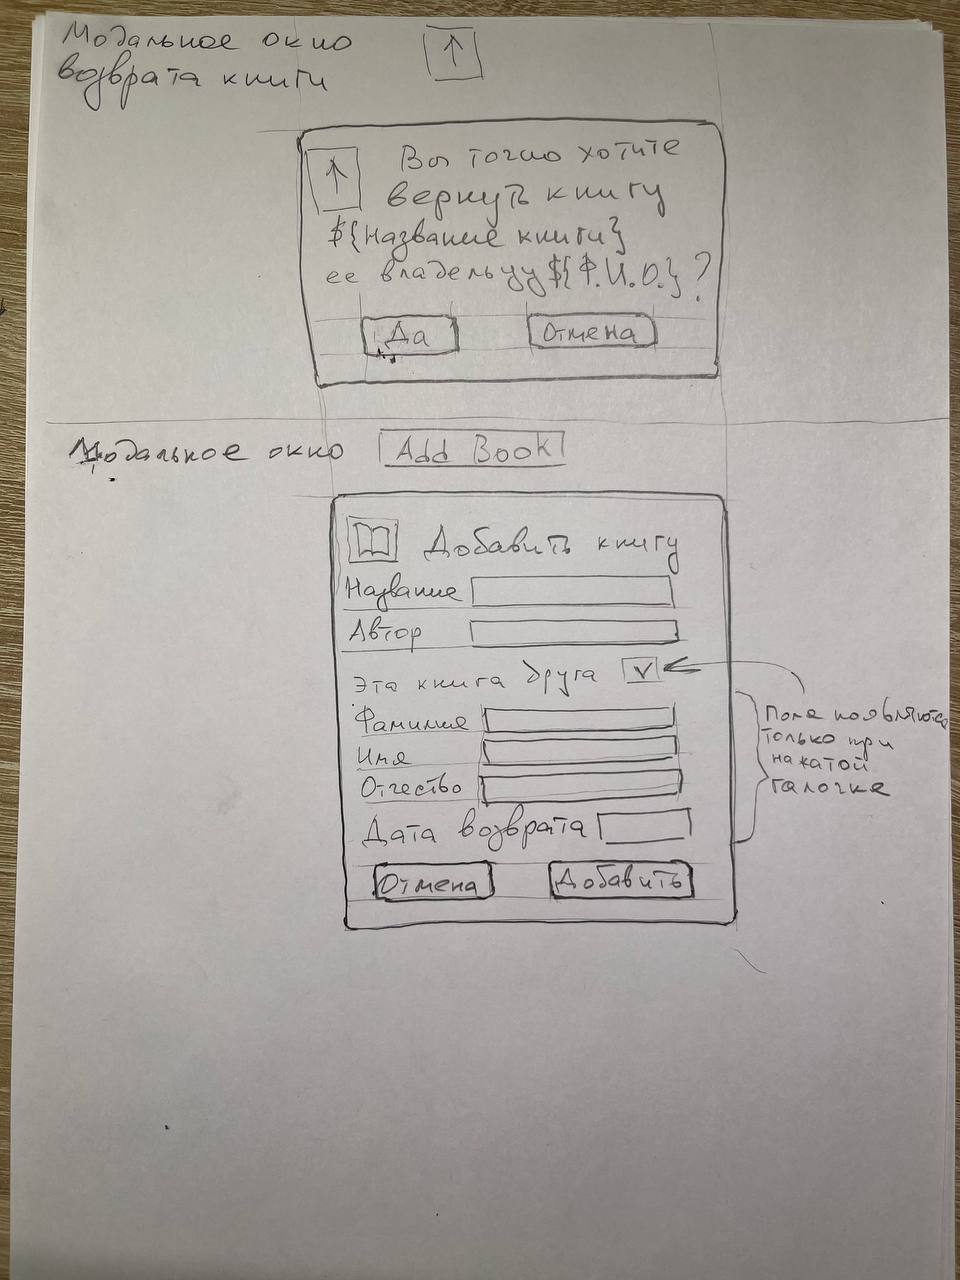 Модальное окно
возврата книги
Вы точно хотите
вернуть книгу
${Название книги}
ее владельцу ${Ф.И.О.}?
Да
Отмена
Модальное окно
Add Book
Добавить книгу
Название
Автор
Эта книга друга
Фамилия
Имя
Отчество
Дата возврата
Отмена
Добавить
Поля появляются
только при
нажатой
галочке